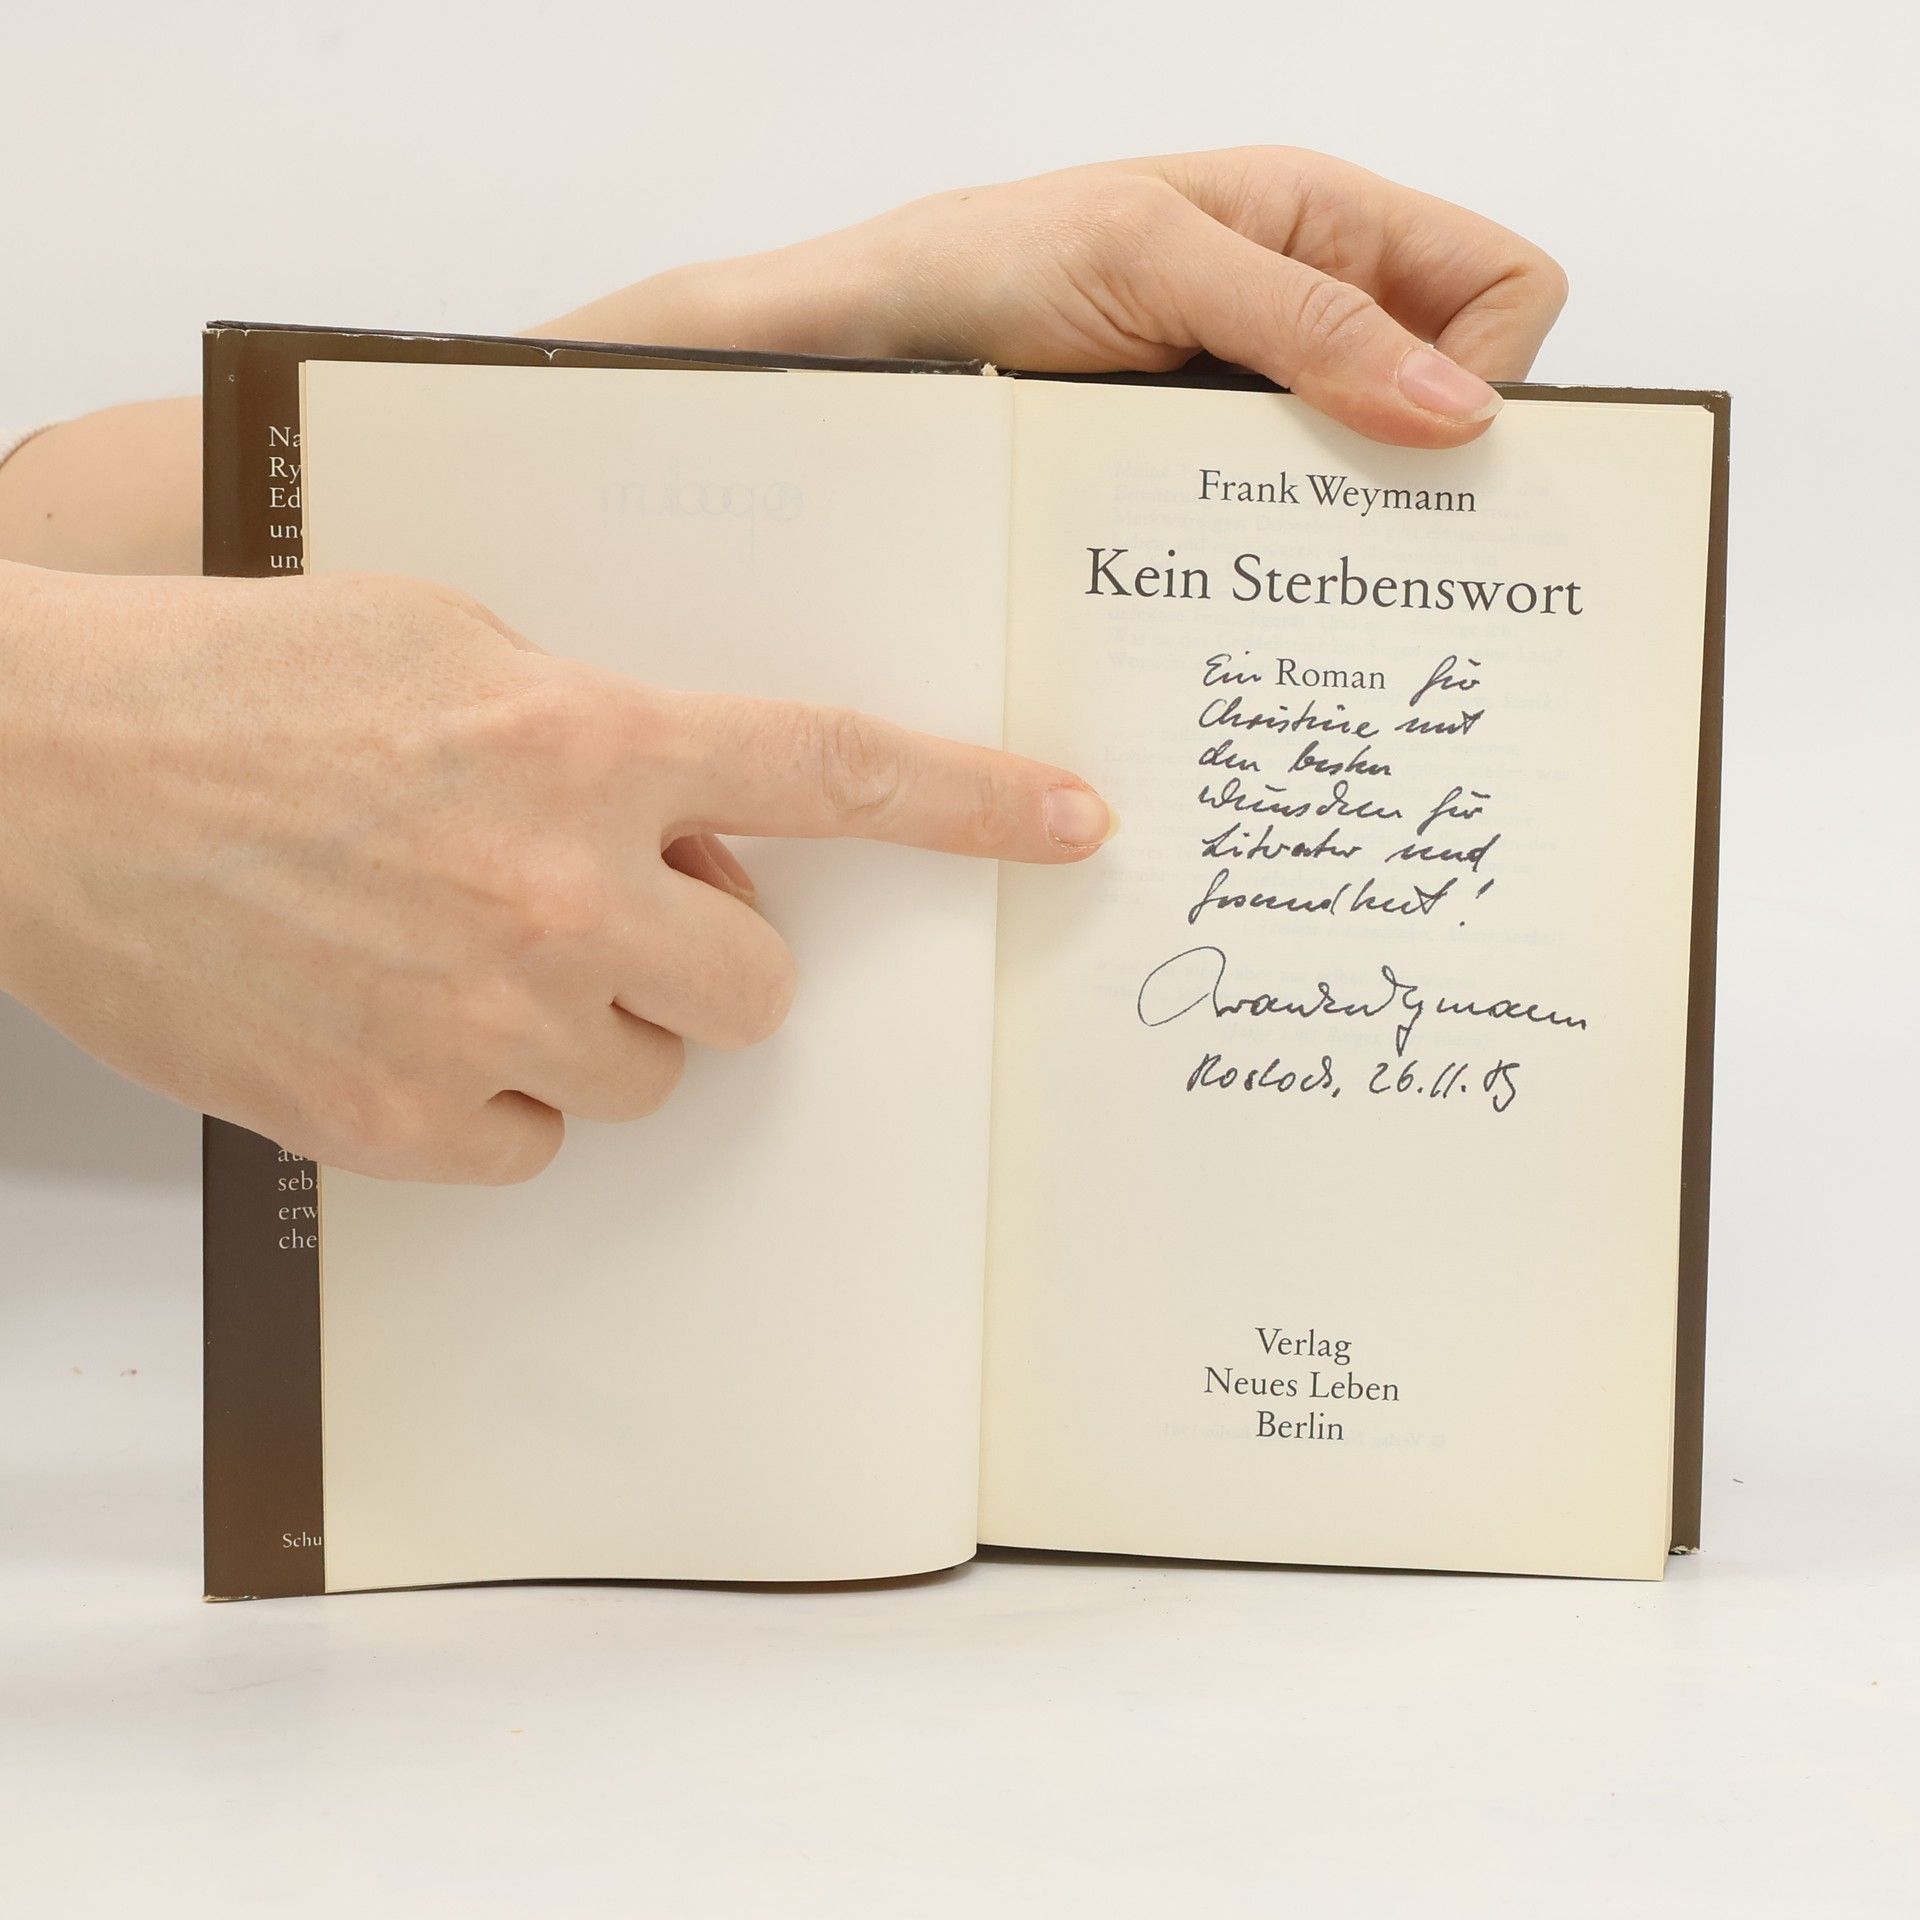 Na
Ry
Ed
und
und
seb
erw
che
Schu
Frank Weymann
Kein Sterbenswort
Ein Roman für
Christine mit
den besten
Wünschen für
Literatur und
Gesundheit!
Frank Weymann
Rostock, 26.11.85
Verlag
Neues Leben
Berlin